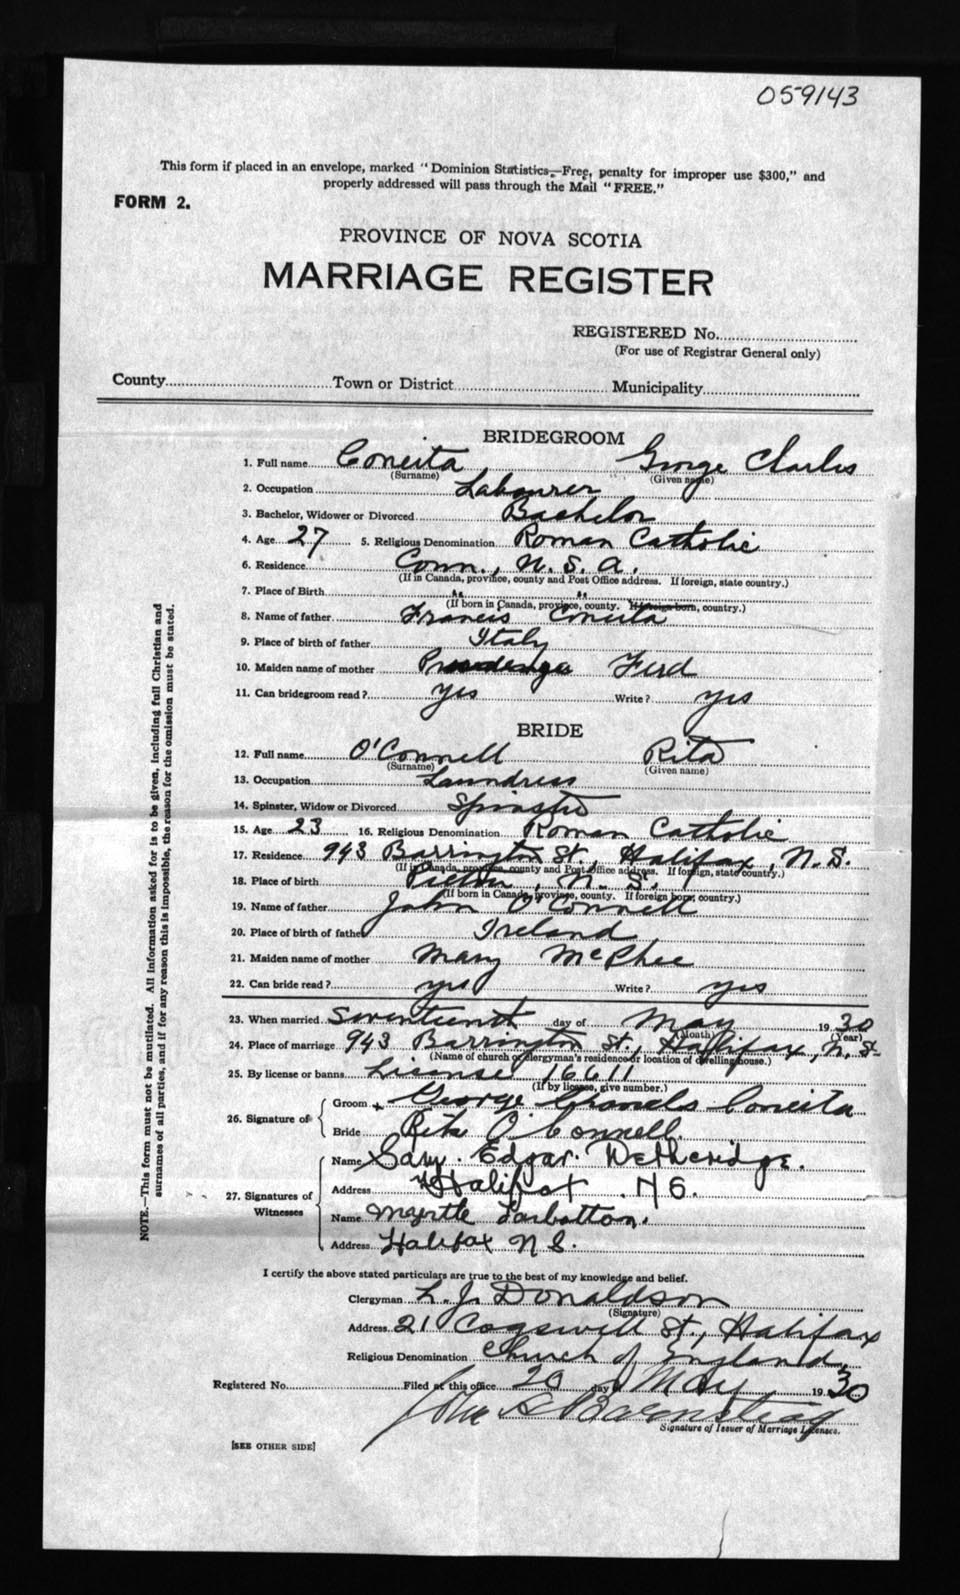 059143
This form if placed in an envelope, marked "Dominion Statistics,—Free, penalty for improper use $300," and
properly addressed will pass through the Mail "FREE."
FORM 2.
PROVINCE OF NOVA SCOTIA
MARRIAGE REGISTER
REGISTERED No.
(For use of Registrar General only)
County Town or District Municipality
BRIDEGROOM
1. Full name Concita George Charles
(Surname) (Given name)
2. Occupation Labourer
3. Bachelor, Widower or Divorced Bachelor
4. Age 27 5. Religious Denomination Roman Catholic
6. Residence Conn., U.S.A.
(If in Canada, province, county and Post Office address. If foreign, state country.)
7. Place of Birth " "
(If born in Canada, province, county. If foreign born, country.)
8. Name of father Francis Concita
9. Place of birth of father Italy
10. Maiden name of mother Ferd
11. Can bridegroom read? yes Write? yes
BRIDE
12. Full name O'Connell Rita
(Surname) (Given name)
13. Occupation Laundress
14. Spinster, Widow or Divorced Spinster
15. Age 23 16. Religious Denomination Roman Catholic
17. Residence 943 Barrington St., Halifax, N.S.
(If in Canada, province, county and Post Office address. If foreign, state country.)
18. Place of birth Pictou, N.S.
(If born in Canada, province, county. If foreign born, country.)
19. Name of father John O'Connell
20. Place of birth of father Ireland
21. Maiden name of mother Mary McPhee
22. Can bride read? yes Write? yes
23. When married Seventeenth day of May 1930
(Month) (Year)
24. Place of marriage 943 Barrington St., Halifax, N.S.
(Name of church or clergyman's residence or location of dwelling house.)
25. By license or banns License 16611
(If by license, give number.)
26. Signature of Groom x George Concita
Bride Rita O'Connell.
27. Signatures of Witnesses Name Edgar. Wetheridge.
Address Halifax . N S.
Name Myrtle Tarbotton.
Address Halifax N S.
I certify the above stated particulars are true to the best of my knowledge and belief.
Clergyman L. J. Donaldson
(Signature)
Address 21 Cogswell St., Halifax
Religious Denomination Church of England
Registered No. Filed at this office 20 day of May 1930
John
Signature of Issuer of Marriage Licenses.
[SEE OTHER SIDE]
NOTE.—This form must not be mutilated. All information asked for is to be given, including full Christian and
surnames of all parties, and if for any reason this is impossible, the reason for the omission must be stated.